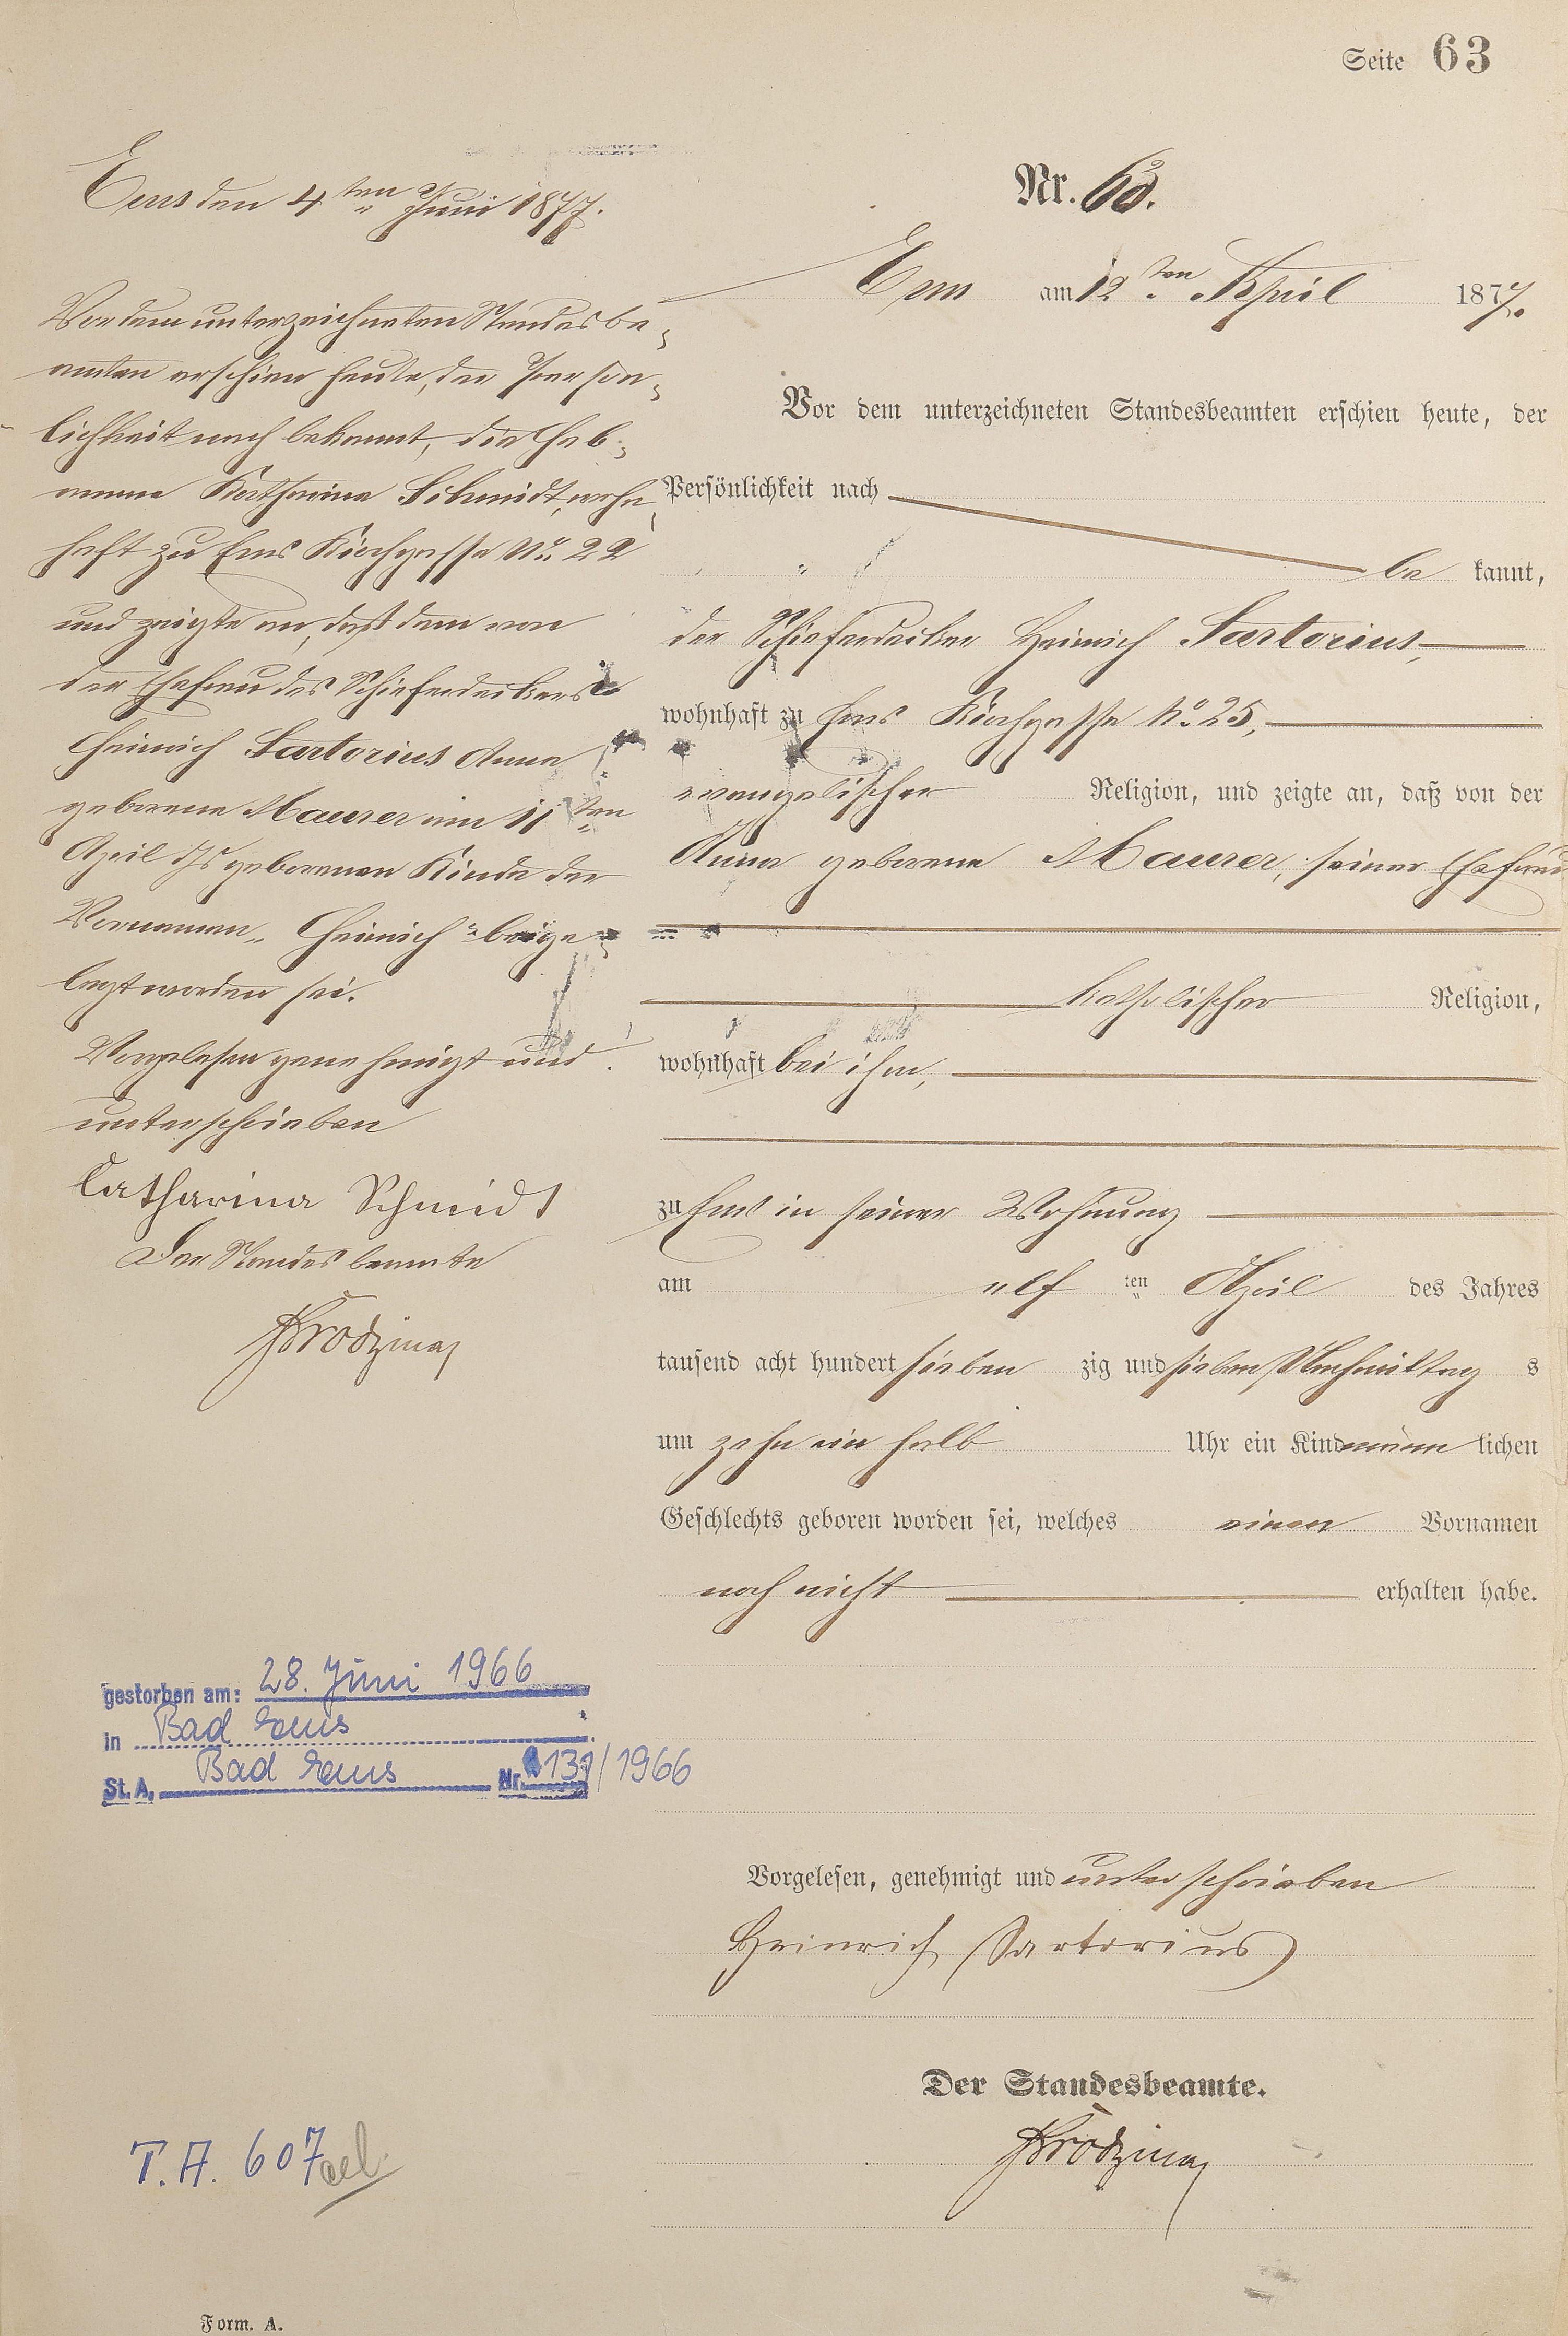 Seite 63
Ems den 4ten Juni 1877.
Vor dem unterzeichneten Standesbe-
amten erschien heute, der Persön-
lichkeit nach bekannt, die Heb-
amme Katharina Schmidt, wohn-
haft zu Ems Kirchgasse No. 22
und zeigte an, daß dem von
der Ehefrau des Schieferdeckers
Heinrich Sartorius Anna
geborene Maurer am 11ten
April d. Js. geborenen Kinde der
Vornamen „Heinrich" beige-
legt worden sei.
Vorgelesen genehmigt und
unterschrieben
Catharina Schmidt
Der Standesbeamte
gestorben am: 28. Juni 1966
in Bad Ems
St. A. Bad Ems Nr. 131/1966
T. A. 607
Form. A.
Nr. 63.
Ems am 12ten April 1877.
Vor dem unterzeichneten Standesbeamten erschien heute, der
Persönlichkeit nach
be kannt,
der Schieferdecker Heinrich Sartorius,
wohnhaft zu Ems Kirchgasse No. 25,
evangelischer Religion, und zeigte an, daß von der
Anna geborene Maurer, seiner Ehefrau
katholischer Religion,
wohnhaft bei ihm,
zu Ems in seiner Wohnung
am elf ten April des Jahres
tausend acht hundert sieben zig und sieben Nachmittag s
um zehn ein halb Uhr ein Kind männ lichen
Geschlechts geboren worden sei, welches einen Vornamen
noch nicht erhalten habe.
Vorgelesen, genehmigt und unterschrieben
Heinrich Sartorius
Der Standesbeamte.